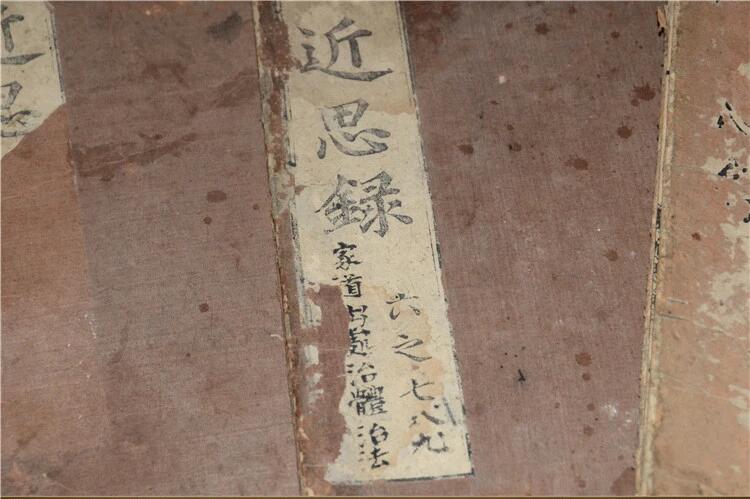 近思録
六之七八九
家道出處治體治法
近思